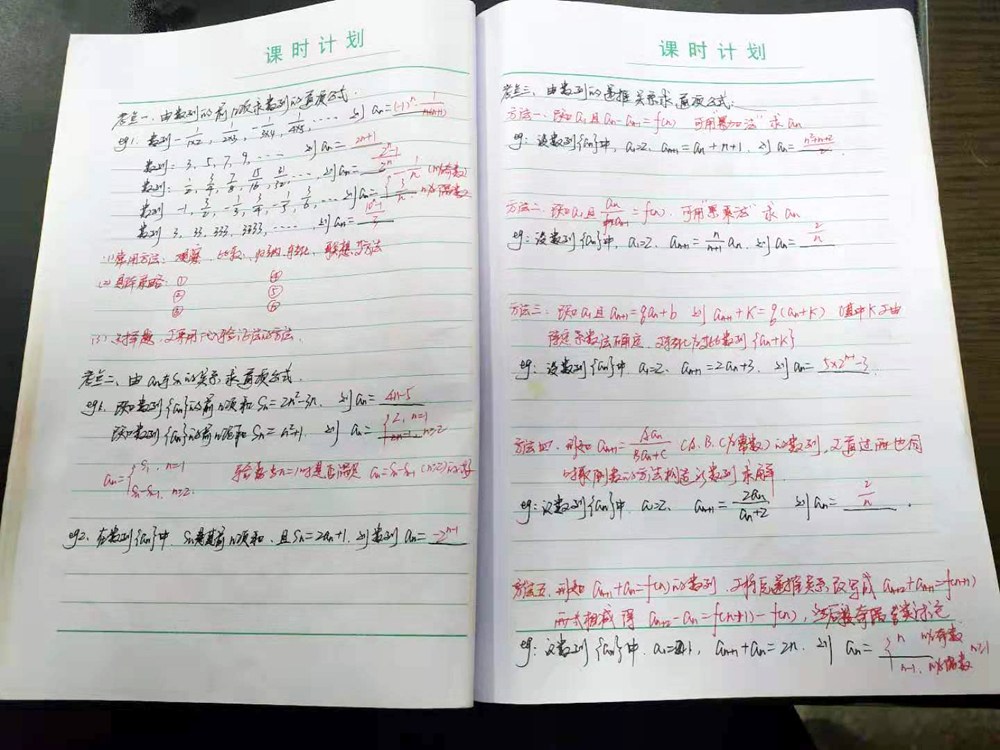 课时计划
考点一、由数列的前n项求数列的通项公式.
eg1. 数列 -1/(1×2), 1/(2×3), -1/(3×4), 1/(4×5), …… 则 an = (-1)^n · 1/(n(n+1))
数列: 3, 5, 7, 9, …… 则 an = 2n+1
数列: 1/2, 3/4, 7/8, 15/16, 31/32, …… 则 an = (2^n-1)/2^n
数列 -1, 3/2, -1/3, 3/4, -1/5, 3/6, …… 则 an = { -1/n (n为奇数) 3/n, n为偶数
数列 3, 33, 333, 3333, …… 则 an = (10^n-1)/3
(1) 常用方法: 观察、比较、归纳、转化、联想等方法
(2) 具体策略: ① ④
② ⑤
③ ⑥
(3) 对
考点二、由an与Sn的关系求通项公式.
eg1. 已知数列{an}的前n项和Sn=2n²-3n, 则 an = 4n-5
已知数列{an}的前n项和Sn=n²+1, 则 an = { 2, n=1 2n-1, n≥2
an = { S1, n=1 Sn-Sn-1, n≥2. 验当n=1时是否满足 an=Sn-Sn-1 (n≥2)
eg2. 在数列{an}中, Sn是其前n项和, 且Sn=2an+1, 则数列an = -2^(n-1)
课时计划
考点三、由数列的递推关系求通项公式.
方法一、已知a1且an-an-1=f(n) 可用"累加法"求an
eg: 设数列{an}中, a1=2, an+1=an+n+1, 则 an = (n²+n+2)/2
方法二、已知a1且an/an-1=f(n), 可用"累乘法"求an
eg: 设数列{an}中, a1=2, an+1=n/(n+1) an, 则 an = 2/n
方法三、已知a1且an+1=qan+b 则 an+1+K=q(an+K) (其中K可由
待定系数法确定, 可转化为等比数列{an+K}
eg: 设数列{an}中 a1=2, an+1=2an+3, 则 an = 5×2^(n-1)-3
方法四、形如an+1=Aan/(Ban+C) (A.B.C为常数)的数列, 可通过两边同
时取倒数的方法构造新数列求解
eg: 设数列{an}中, a1=2, an+1=2an/(an+2) 则 an = 2/n .
方法五、形如an+1+an=f(n)的数列, 可将原递推关系改写成 an+2+an+1=f(n+1)
两式相减得 an+2-an=f(n+1)-f(n), 然后按奇偶分类讨论
eg: 设数列{an}中, a1=1, an+1+an=2n, 则 an = { n n为奇数 n-1, n为偶数 n≥1